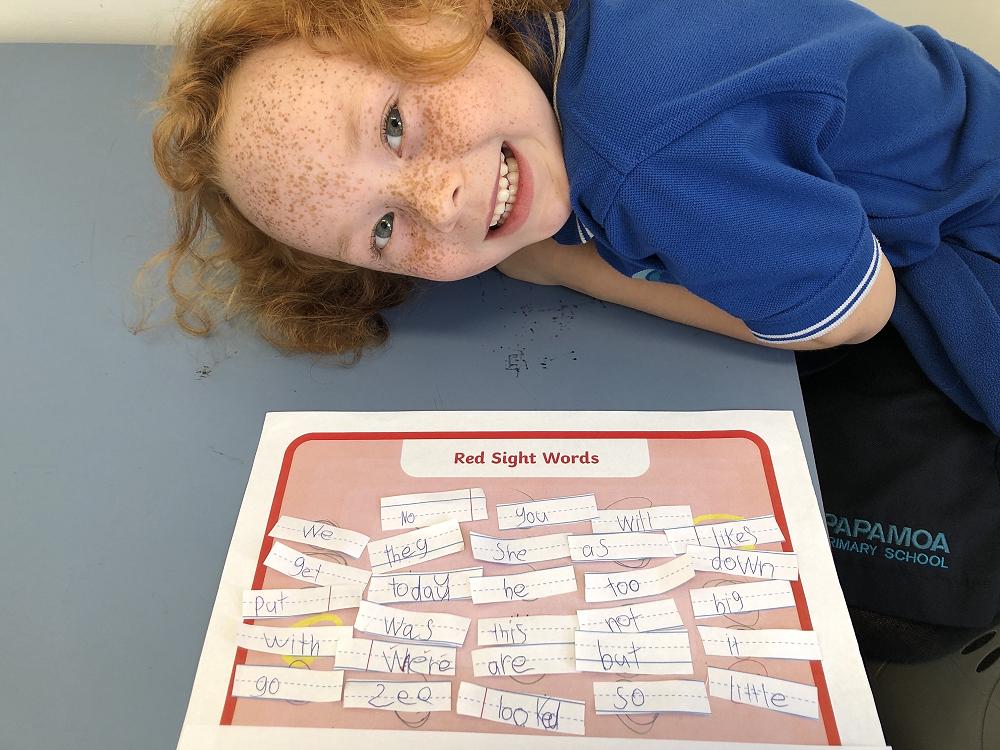 Red Sight Words
No you will
We they she as likes
get today he too down
put was this not big
with Were are but It
go zee looked so little
PAPAMOA
PRIMARY SCHOOL